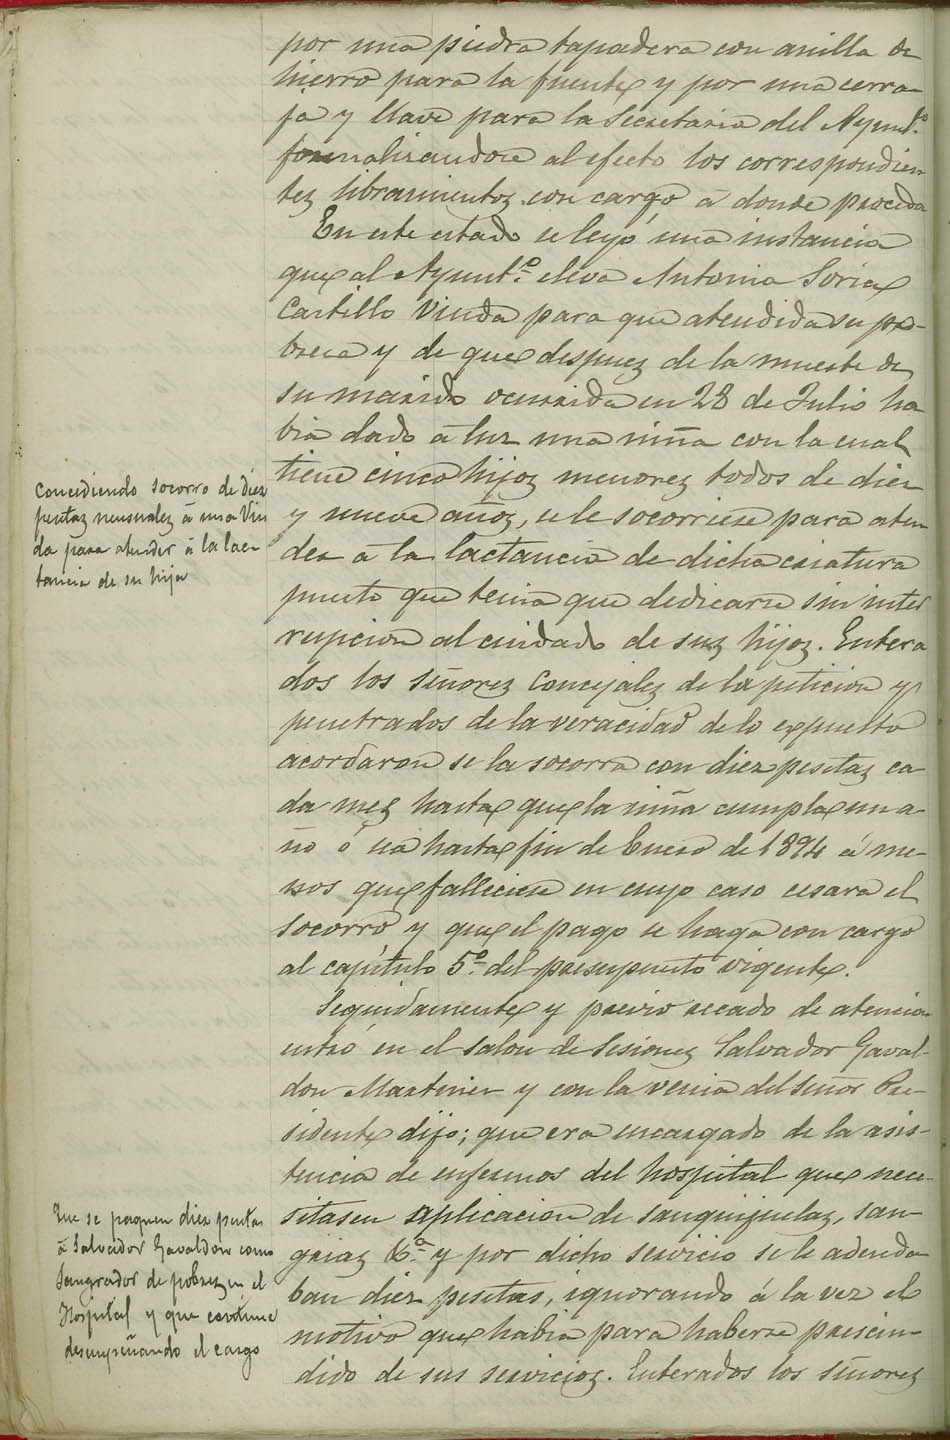 por una piedra tapadera con anilla de
hierro para la fuente y por una cerra-
ja y llave para la Secretaria del Ayunt.º
formalizandose al efecto los correspondien
tes libramientos con cargo á donde proceda
En este estado se leyó una instancia
que al Ayunt.º eleva Antonia Soria
Castillo Viuda para que atendida su po-
breza y de que despues de la muerte de
su marido ocurrida en 28 de Julio ha
bia dado á luz una niña con la cual
tiene cinco hijos menores todos de diez
y nueve años, se le socorriese para aten
der á la lactancia de dicha criatura
puesto que tenia que dedicarse sin inter
rupcion al cuidado de sus hijos. Entera
dos los señores Concejales de la peticion y
penetrados de la veracidad de lo expuesto
acordaron se la socorra con diez pesetas ca
da mes hasta que la niña cumpla un a-
ño ó sea hasta fin de Enero de 1894 á me-
nos que falleciese en cuyo caso cesara el
socorro y que el pago se haga con cargo
al capítulo 5.º del presupuesto vigente.
Seguidamente y previo recado de atencion
entró en el salon de Sesiones Salvador Gaval-
don Martinez y con la venia del Señor Pre-
sidente dijo; que era encargado de la asis-
tencia de enfermos del hospital que nece-
sitasen aplicacion de sanguijuelas, san-
grias &.ª y por dicho servicio se le adeuda
ban diez pesetas, ignorando á la vez el
motivo que habia para haberse prescin-
dido de sus servicios. Enterados los señores
Concediendo socorro de diez
pesetas mensuales á una Viu
da para atender á la lac-
tancia de su hija
Que se paguen diez pesetas
á Salvador Gavaldon como
Sangrador de pobres en el
Hospital y que continue
desempeñando el cargo